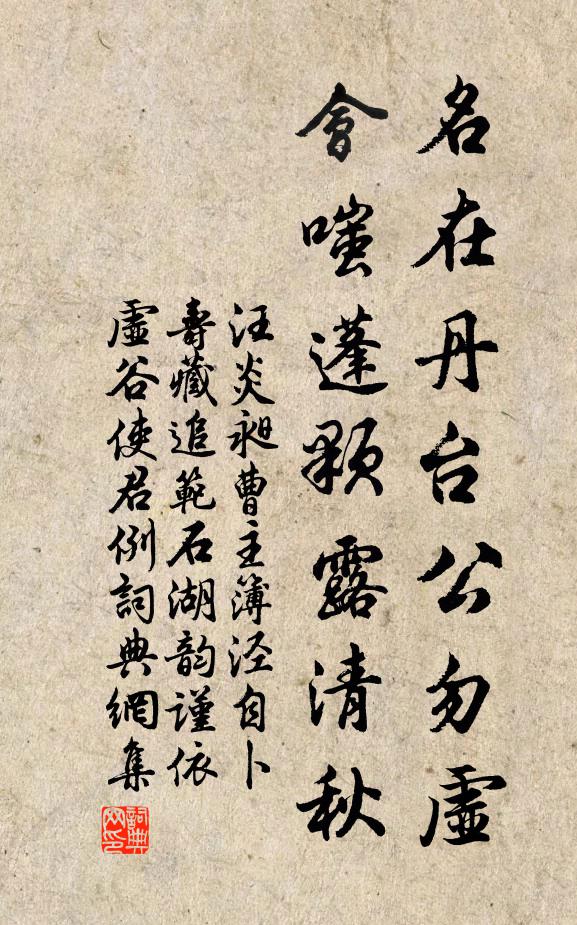 名在丹台公勿虛
會嗤蓬顆露清秋
汪炎昶曹主簿涇自卜
壽藏追範石湖韵謹依
虛谷使君例詞典網集
詞典
网印